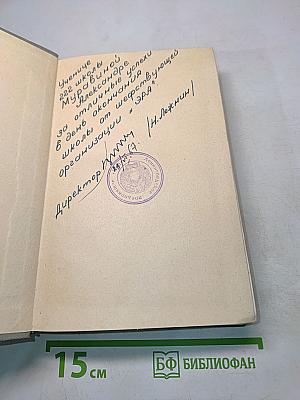 Ученице
222 школы
Муравиной
Александре
за отличные успехи
в день окончания
школы от шефствующей
организации "ЭРА".
Директор /Н. Лежнин/
15 см
БФ БИБЛИОФАН